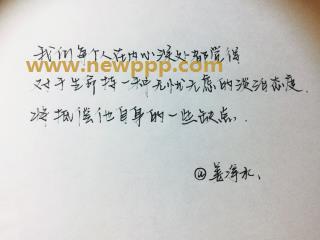 我们每个人在内心深处都觉得
www.newppp.com
对于生命持一种无忧无虑的淡泊态度.
将抵偿他自身的一些缺点.
@姜净水.